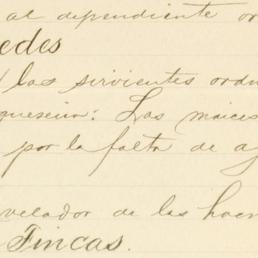 al dependiente or
edes
las sirvientes ordu
queseria: Las maices
por la falta de a
velador de las hacn
Fincas.